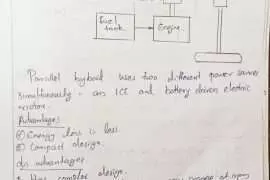 Fuel
tank
Engine
Parallel hybrid uses two different power sources
simultaneously - an ICE and battery driven electric
motor.
Advantages
① Energy loss is less.
② Compact design.
dis advantages
complex design.